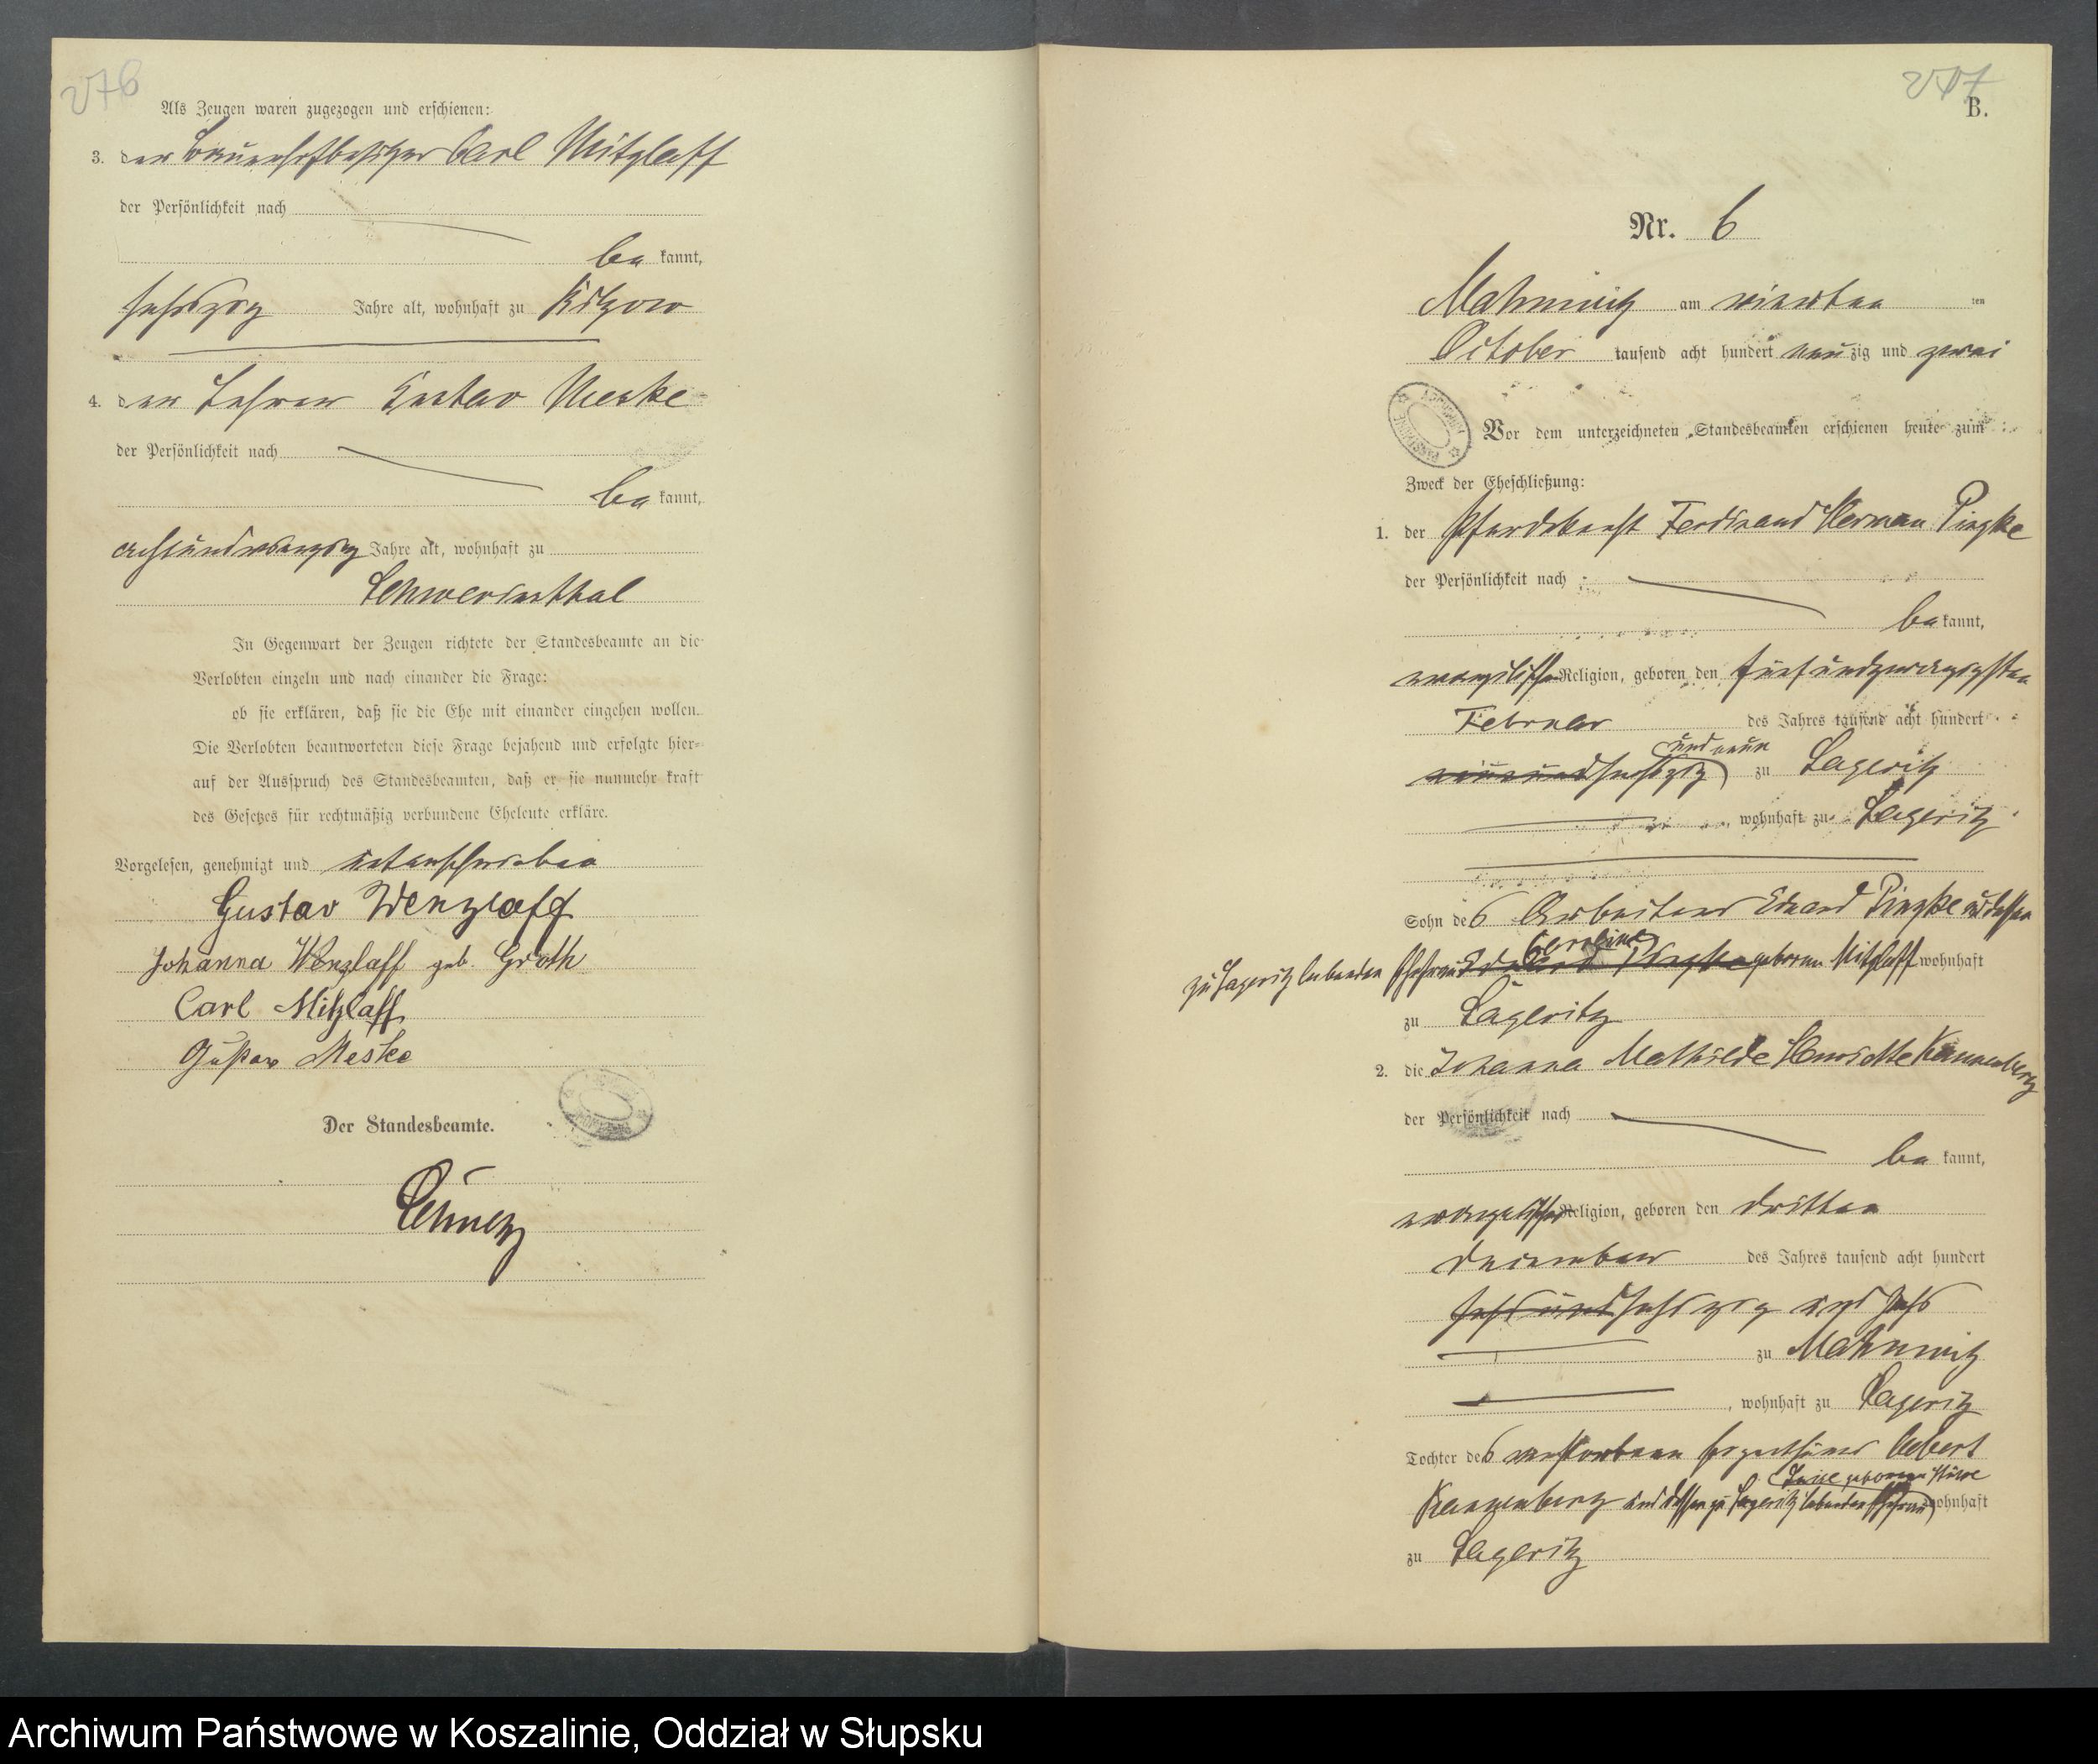 276
Als Zeugen waren zugezogen und erschienen:
3. der Bauerhofbesitzer Carl Mitzlaff
der Persönlichkeit nach
be kannt,
sechszig Jahre alt, wohnhaft zu Kitzow
4. der Lehrer Gustav Meske
der Persönlichkeit nach
be kannt,
achtundzwanzig Jahre alt, wohnhaft zu
Schwerinsthal
In Gegenwart der Zeugen richtete der Standesbeamte an die
Verlobten einzeln und nach einander die Frage:
ob sie erklären, daß sie die Ehe mit einander eingehen wollen.
Die Verlobten beantworteten diese Frage bejahend und erfolgte hier-
auf der Ausspruch des Standesbeamten, daß er sie nunmehr kraft
des Gesetzes für rechtmäßig verbundene Eheleute erkläre.
Vorgelesen, genehmigt und unterschrieben
Gustav Wenzlaff
Johanna Wenzlaff geb. Groth
Carl Mitzlaff
Gustav Meske
Der Standesbeamte.
277
B.
Nr. 6
Mahnwitz am vierten ten
October tausend acht hundert neunzig und zwei
Vor dem unterzeichneten Standesbeamten erschienen heute zum
Zweck der Eheschließung:
1. der Pferdeknecht Ferdinand Herman Piepke
der Persönlichkeit nach
be kannt,
evangelischer Religion, geboren den fünfundzwanzigsten
Februar des Jahres tausend acht hundert
und neun
sechszig zu Lageritz
, wohnhaft zu Lageritz
Sohn des Arbeiters Eduard Piepke und dessen
Caroline
zu Lageritz lebenden Ehefrau geborene Mitzlaff wohnhaft
zu Lageritz
2. die Johanna Mathilde Henriette Kannenberg
der Persönlichkeit nach
be kannt,
evangelischer Religion, geboren den dritten
December des Jahres tausend acht hundert
sechs und sechszig und sechs
zu Mahnwitz
, wohnhaft zu Lageritz
Tochter des verstorbenen Eigenthümer Albert
geborene
Kannenberg und dessen zu Lageritz lebenden Ehefrau wohnhaft
zu Lageritz
Archiwum Państwowe w Koszalinie, Oddział w Słupsku